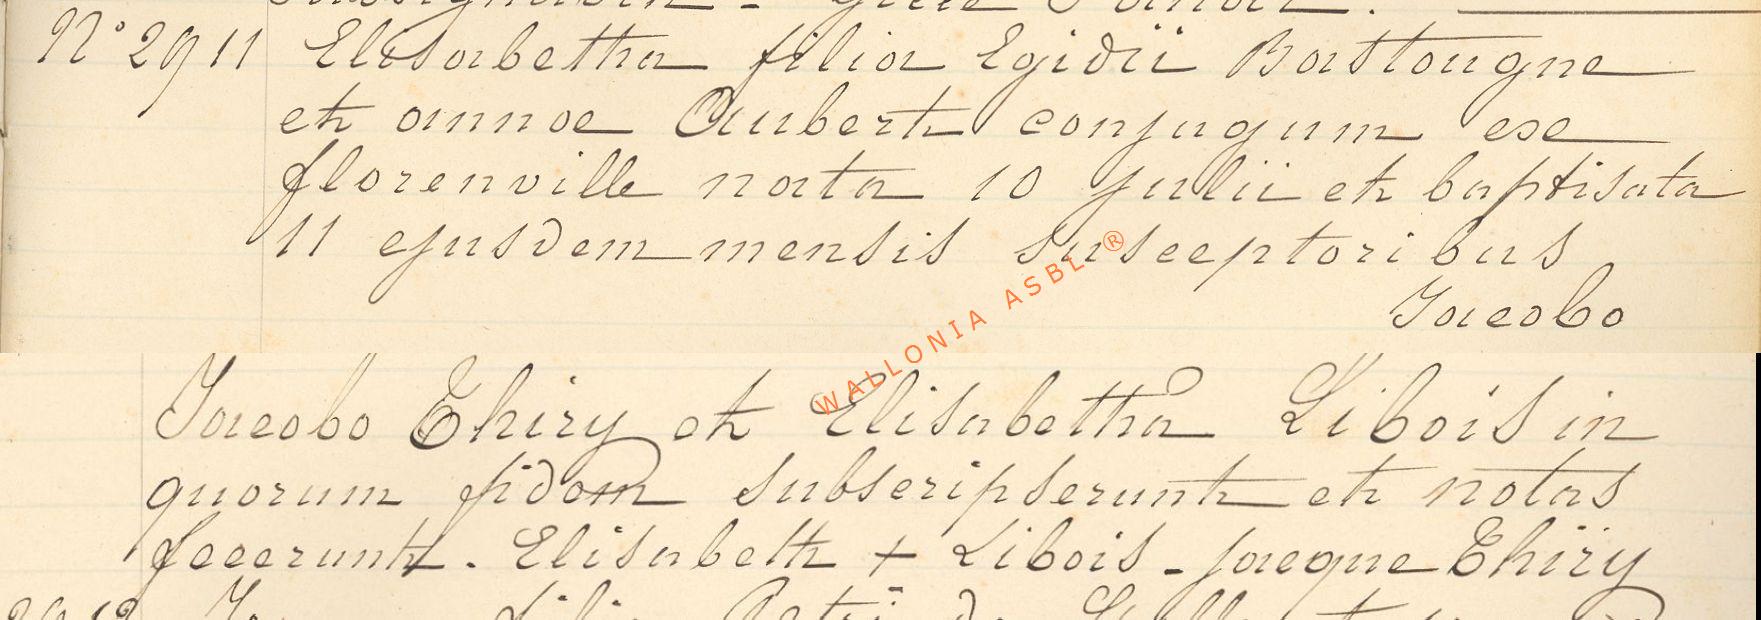 N° 2911 Elisabetha filia Egidii Bastougne
et annae Aubert conjugum ex
florenville nata 10 julii et baptisata
11 ejusdem mensis susceptoribus
Jacobo
WALLONIA ASBL ®
Jacobo Thiry et Elisabetha Libois in
quorum fidem subscripserunt et notas
fecerunt. Elisabeth + Libois - jacque Thiry